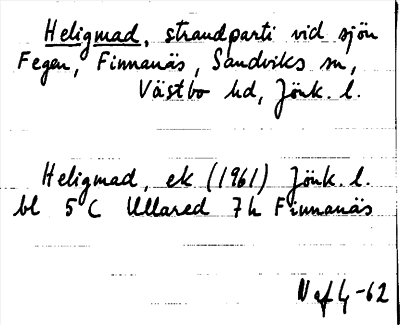 Heligmad, strandparti vid sjön
Fegen, Finnanäs, Sandviks sn,
Västbo hd, Jönk. l.
Heligmad, ek (1961) Jönk. l.
bl 5 C Ullared 7 h Finnanäs
-62